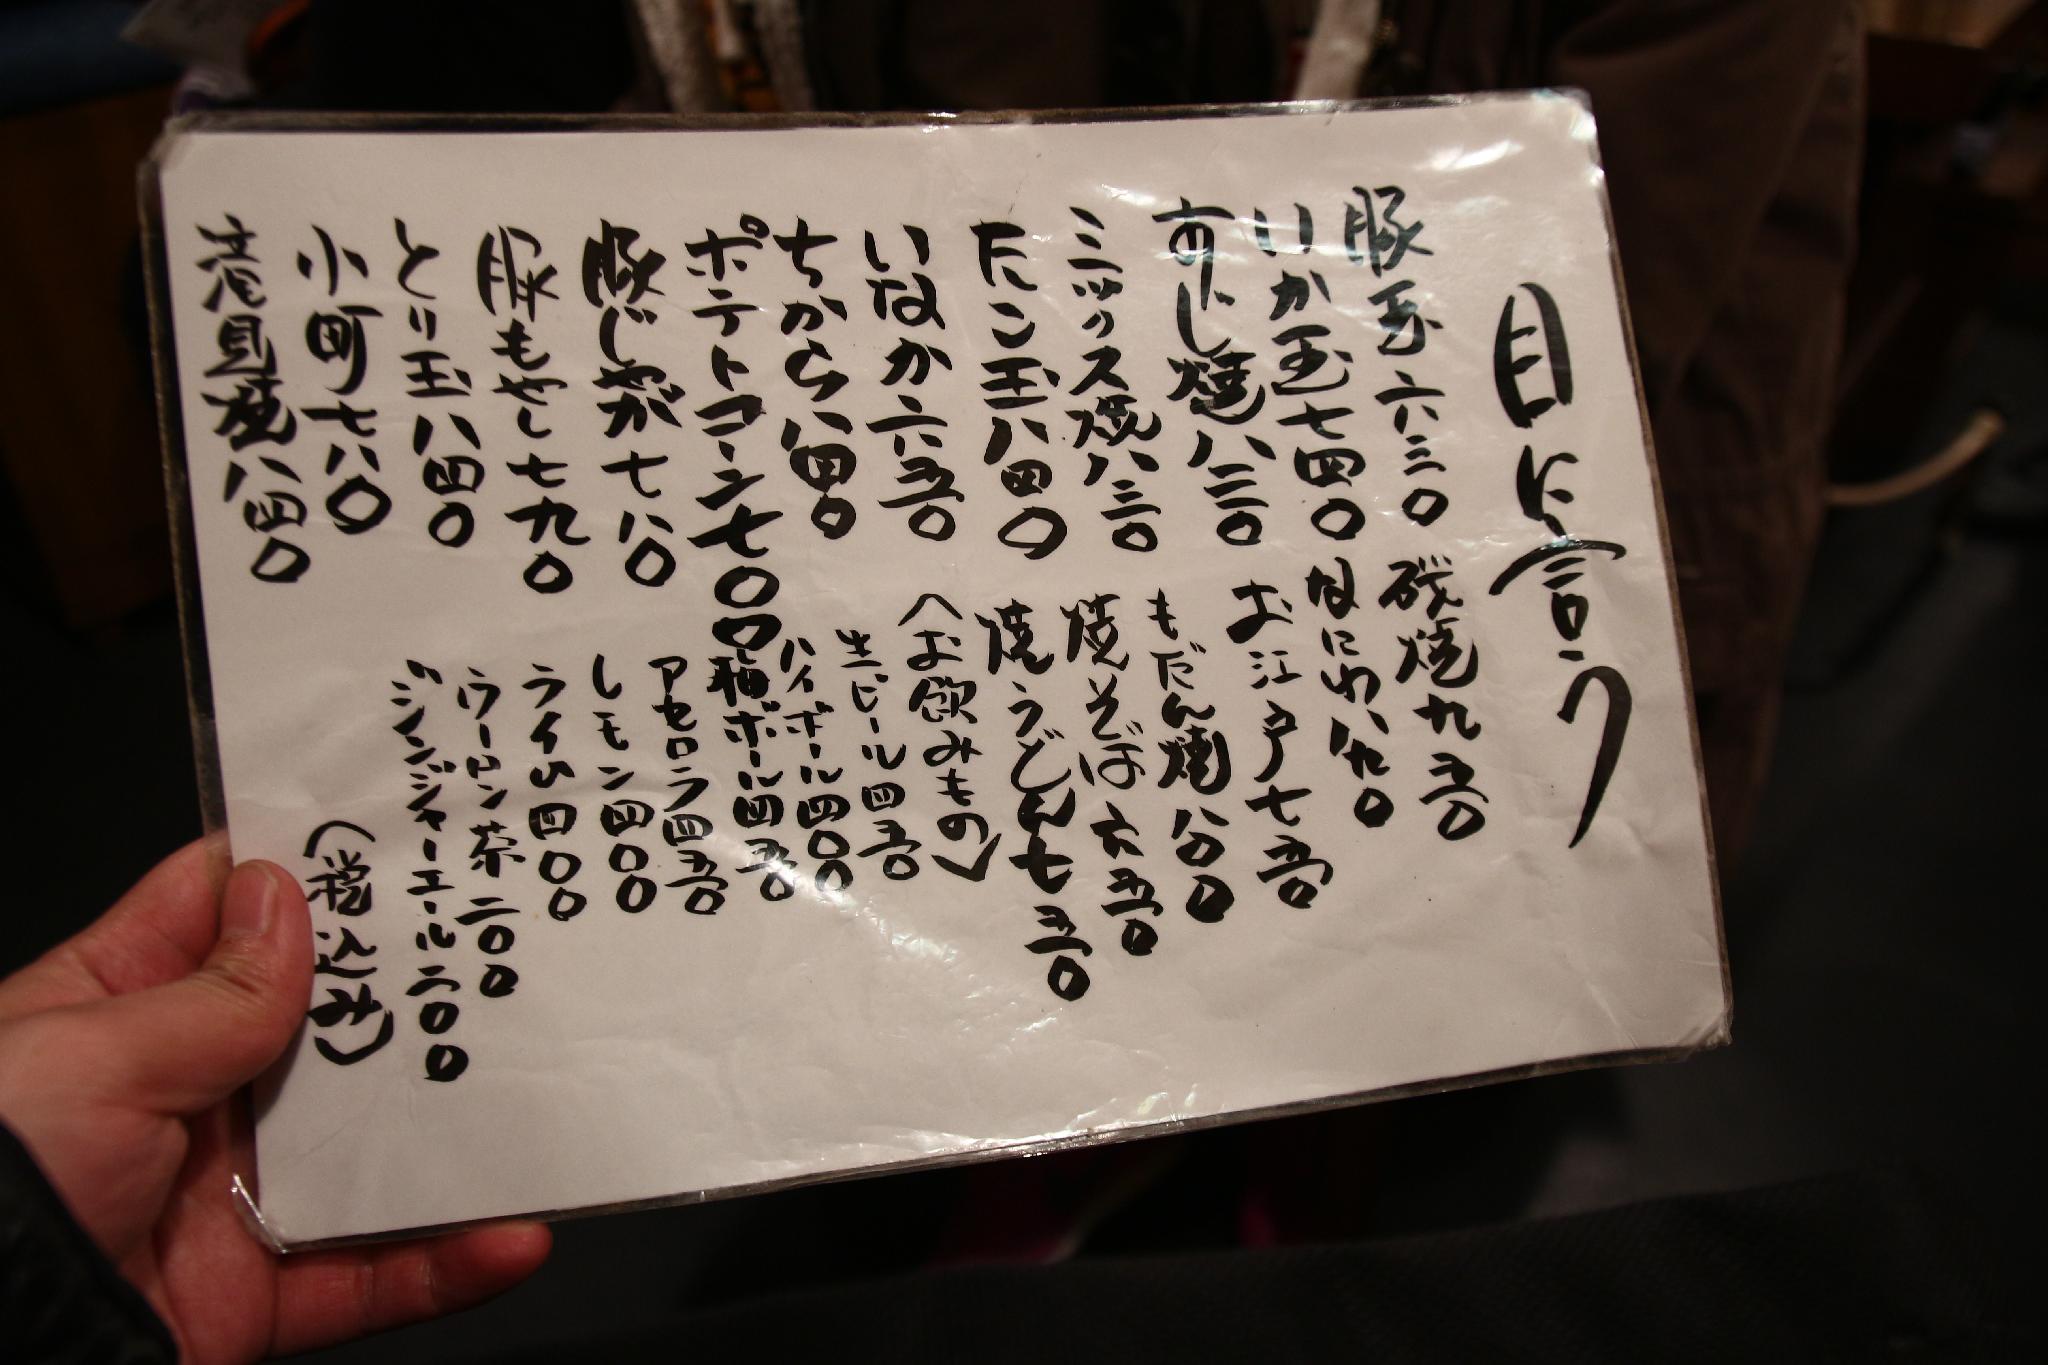 目に言う
豚玉六三〇
いか玉七四〇
おやじ焼八三〇
ミックス焼八三〇
たン玉八四〇
いなか六五〇
ちから八四〇
ポテトコーン七〇〇
豚じゃが七八〇
豚もやし七九〇
とり玉八四〇
小町七八〇
滝見焼八四〇
磯焼九五〇
なにわ八九〇
お江戸七五〇
もだん焼八八〇
焼そば六五〇
焼うどん七五〇
〈お飲みもの〉
生ビール四五〇
ハイボール四〇〇
梅ボール四五〇
アセロラ四五〇
レモン四〇〇
ライム四〇〇
ウーロン茶二〇〇
ジンジャーエール二〇〇
(税込み)